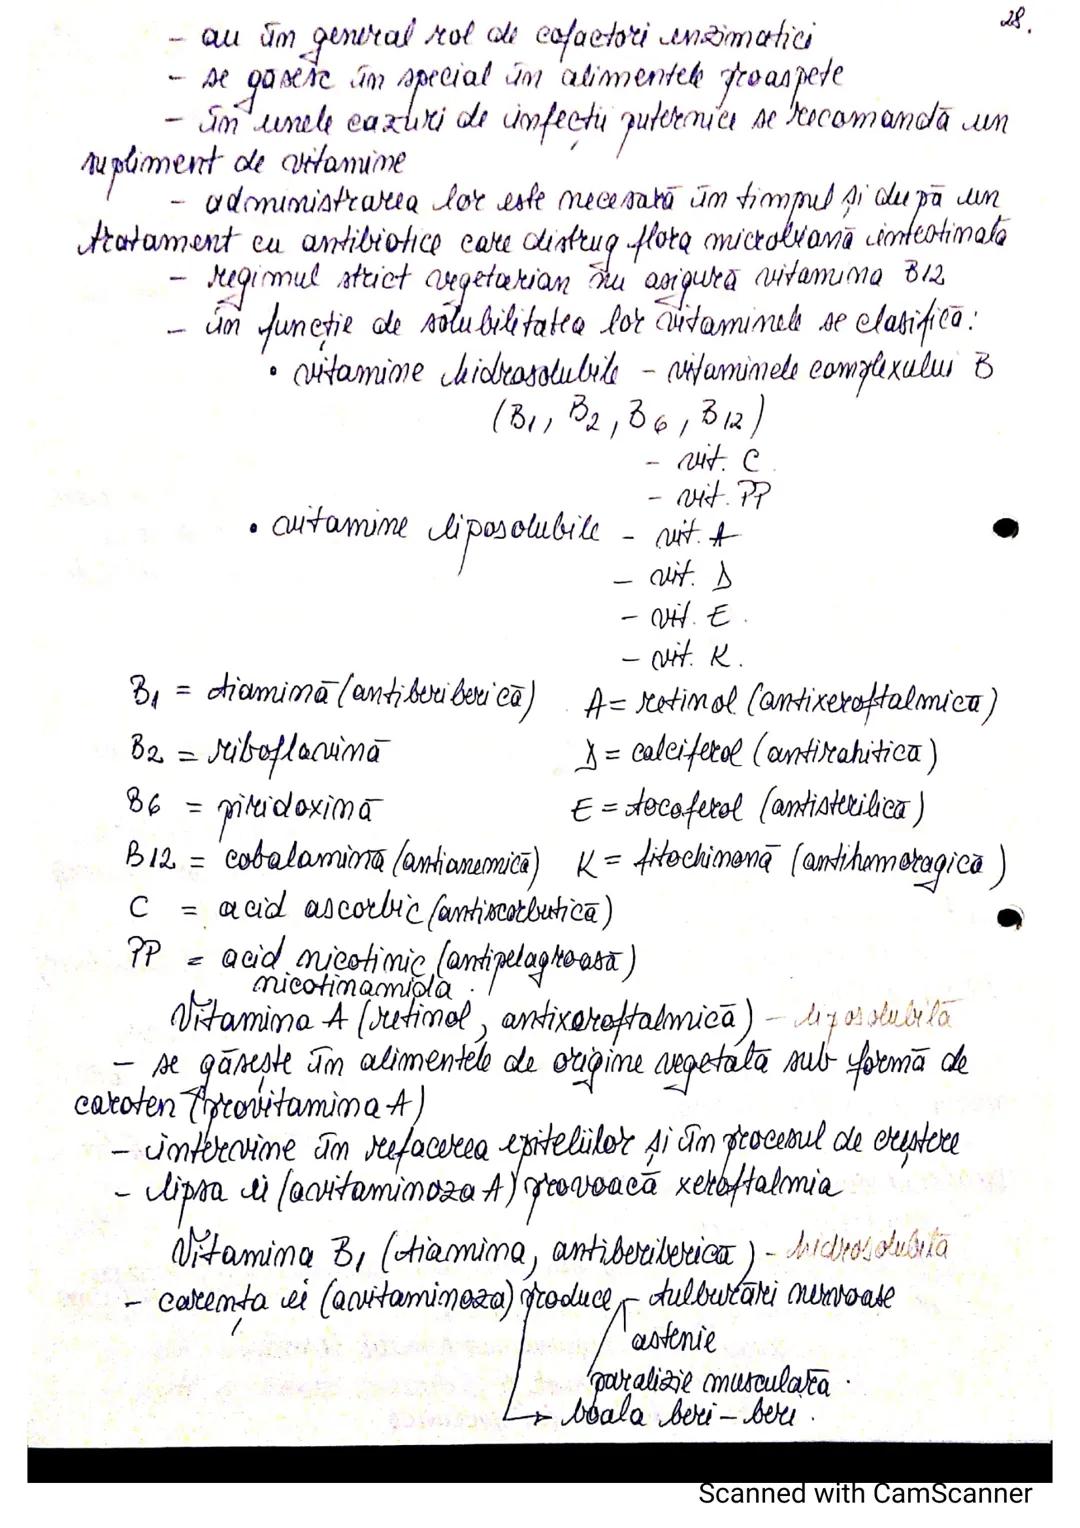 28.
- au în general rol de cofactori enzimatici
- se găsesc în special în alimentele proaspete
- în unele cazuri de infecții puternice se recomandă un
supliment de vitamine
- administrarea lor este necesară în timpul și după un
tratament cu antibiotice care distrug flora microbiană intestinală
- regimul strict vegetarian nu asigură vitamina B12
- în funcție de solubilitatea lor vitaminele se clasifică:
• vitamine hidrosolubile - vitaminele complexului B
(B1, B2, B6, B12)
- vit. C
- vit. PP
• vitamine liposolubile - vit. A
- vit. D
- vit. E.
- vit. K.
B1 = tiamină (antiberiberică) A = retinol (antixeroftalmică)
B2 = riboflavină D = calciferol (antirahitică)
B6 = piridoxină E = tocoferol (antisterilică)
B12 = cobalamină (antianemică) K = fitochinonă (antihemoragică)
C = acid ascorbic (antiscorbutică)
PP = acid nicotinic (antipelagroasă)
nicotinamida
Vitamina A (retinol, antixeroftalmică) - liposolubilă
- se găsește în alimentele de origine vegetală sub formă de
caroten (provitamina A)
- intervine în refacerea epiteliilor și în procesul de creștere
- lipsa ei (avitaminoza A) provoacă xeroftalmia
Vitamina B1 (tiamina, antiberiberica) - hidrosolubilă
- carența ei (avitaminoza) produce - tulburări nervoase
astenie
paralizie musculară.
→ boala beri-beri.
Scanned with CamScanner